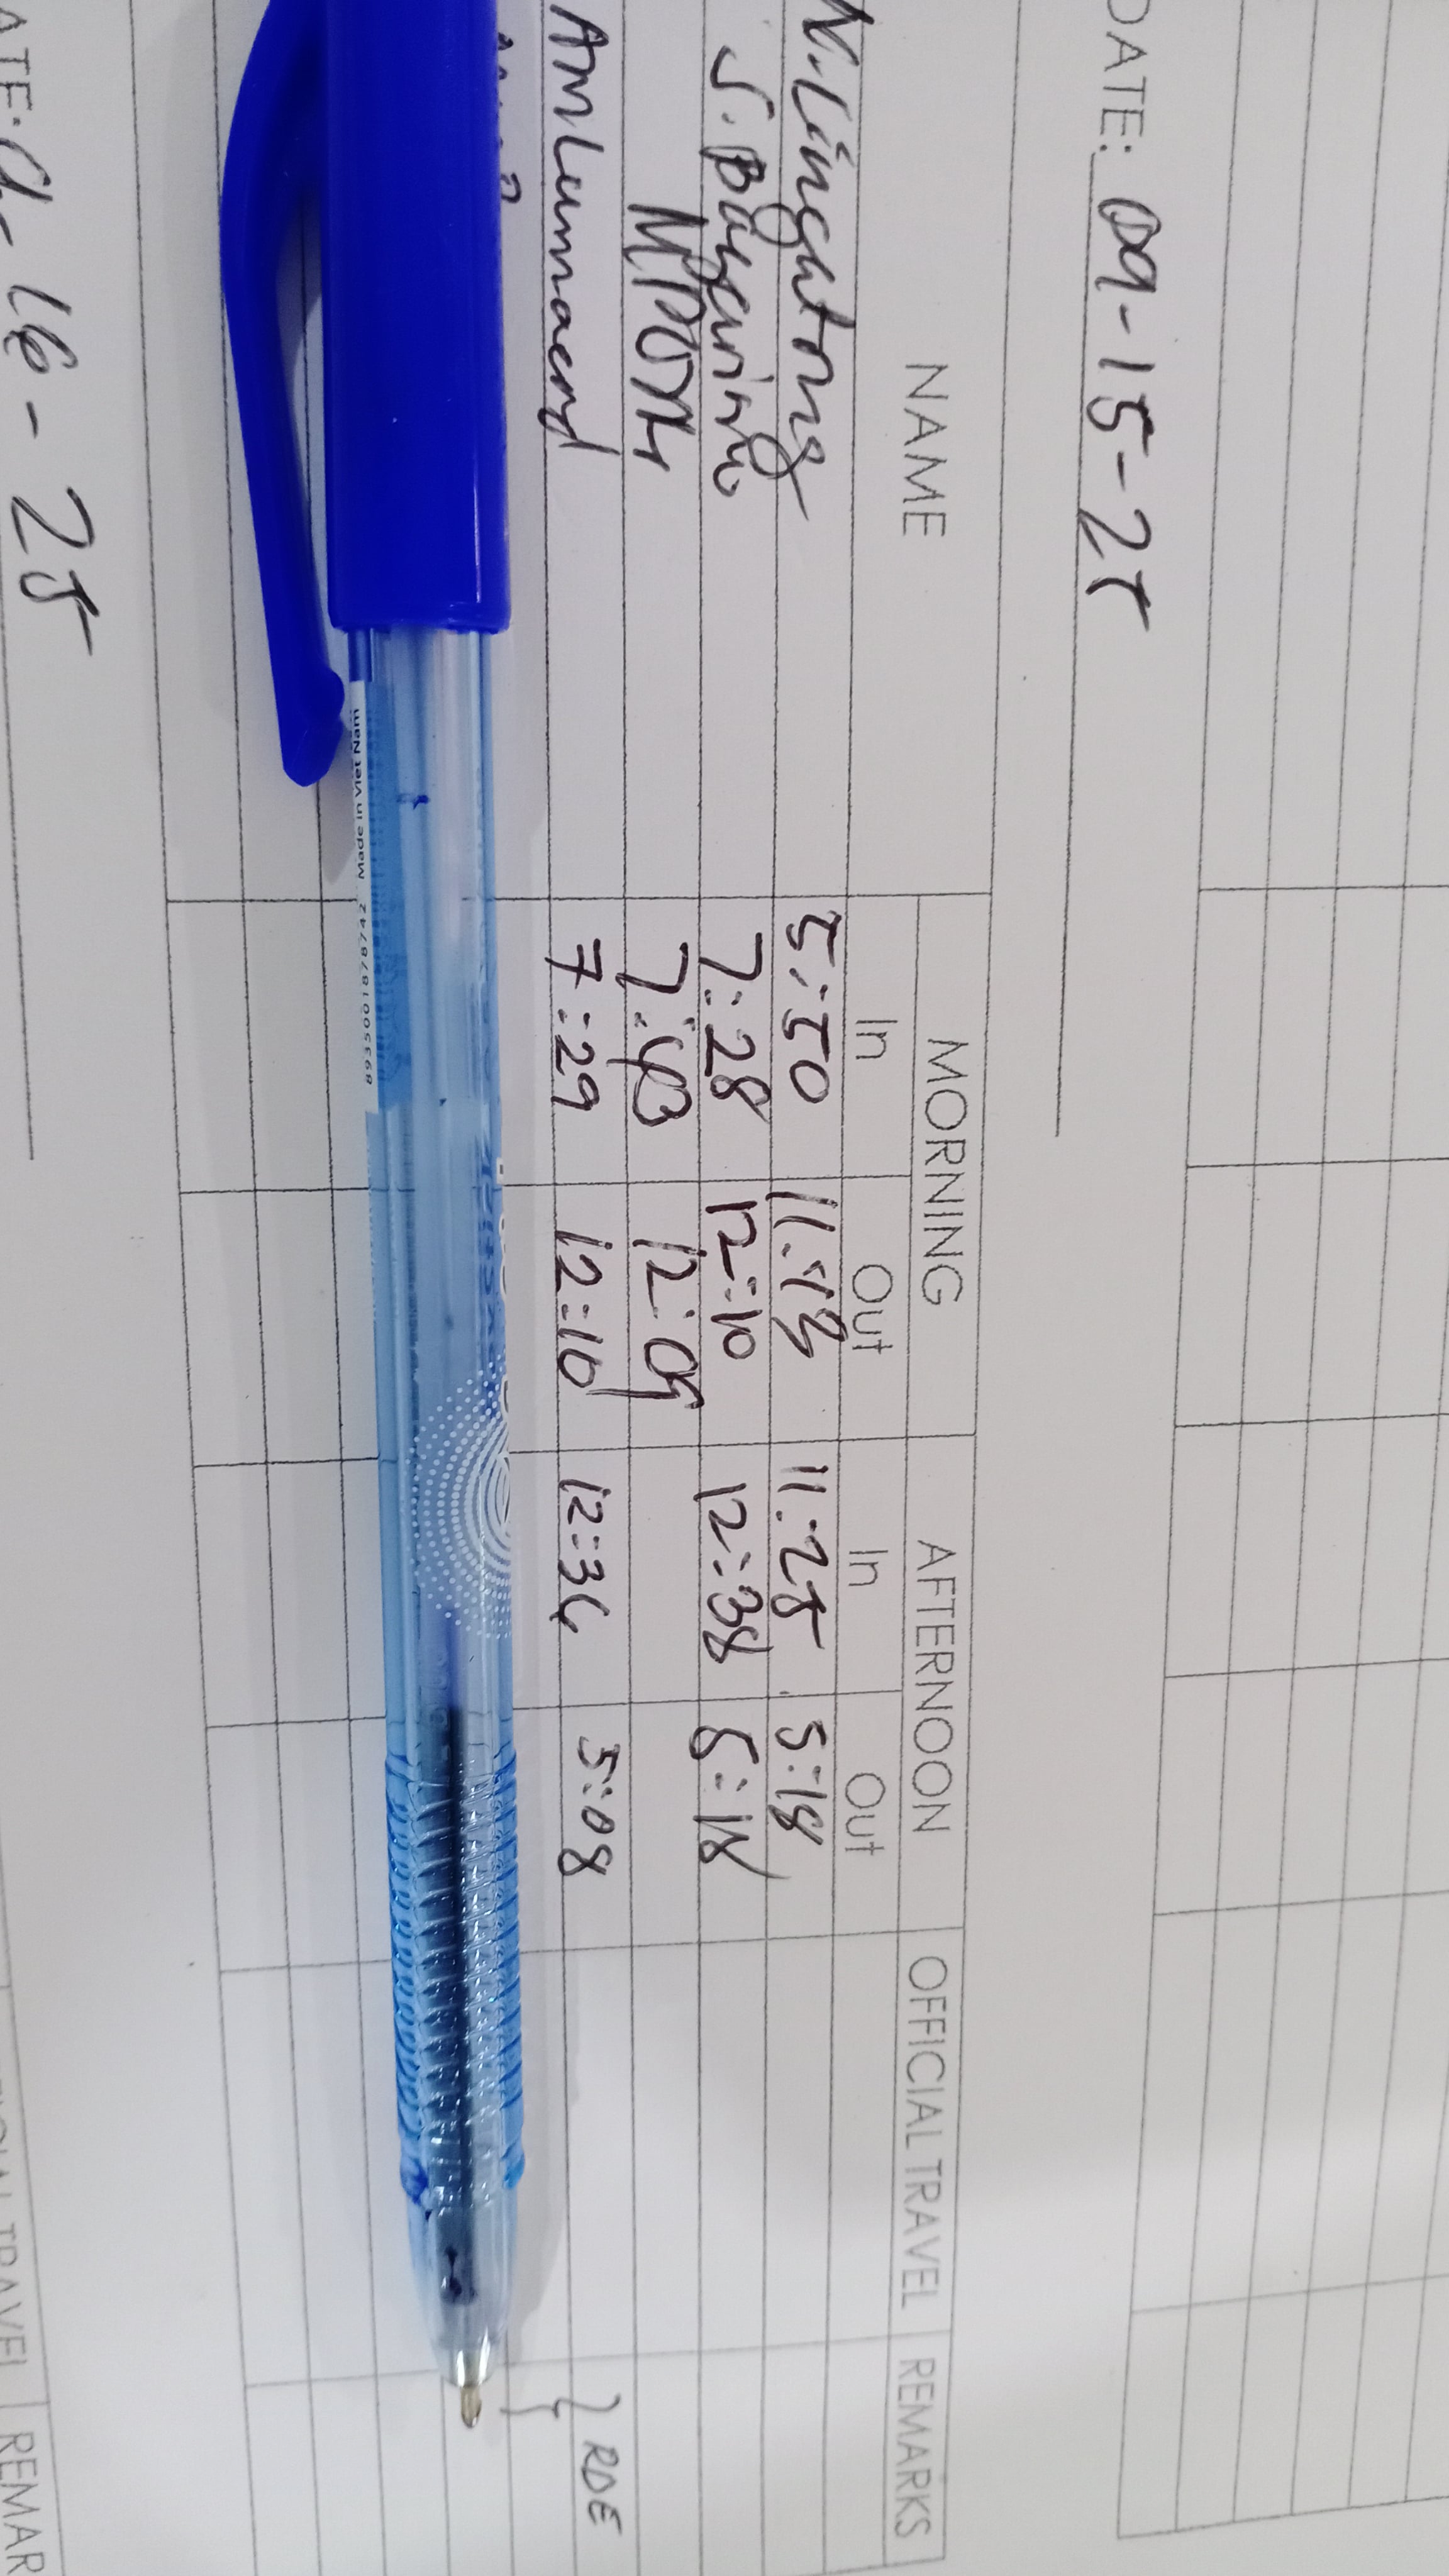 DATE: 09-15-25
NAME MORNING AFTERNOON OFFICIAL TRAVEL REMARKS
In Out In Out
N. Lingatong 5:50 11:13 11:25 5:18
7:28 12:10 12:38 5:18
7:43 12:09
7:29 12:10 12:36 5:08 RDE
Made in Viet Nam
8935001878742
ATE: 9-16-25
TRAVEL REMAR